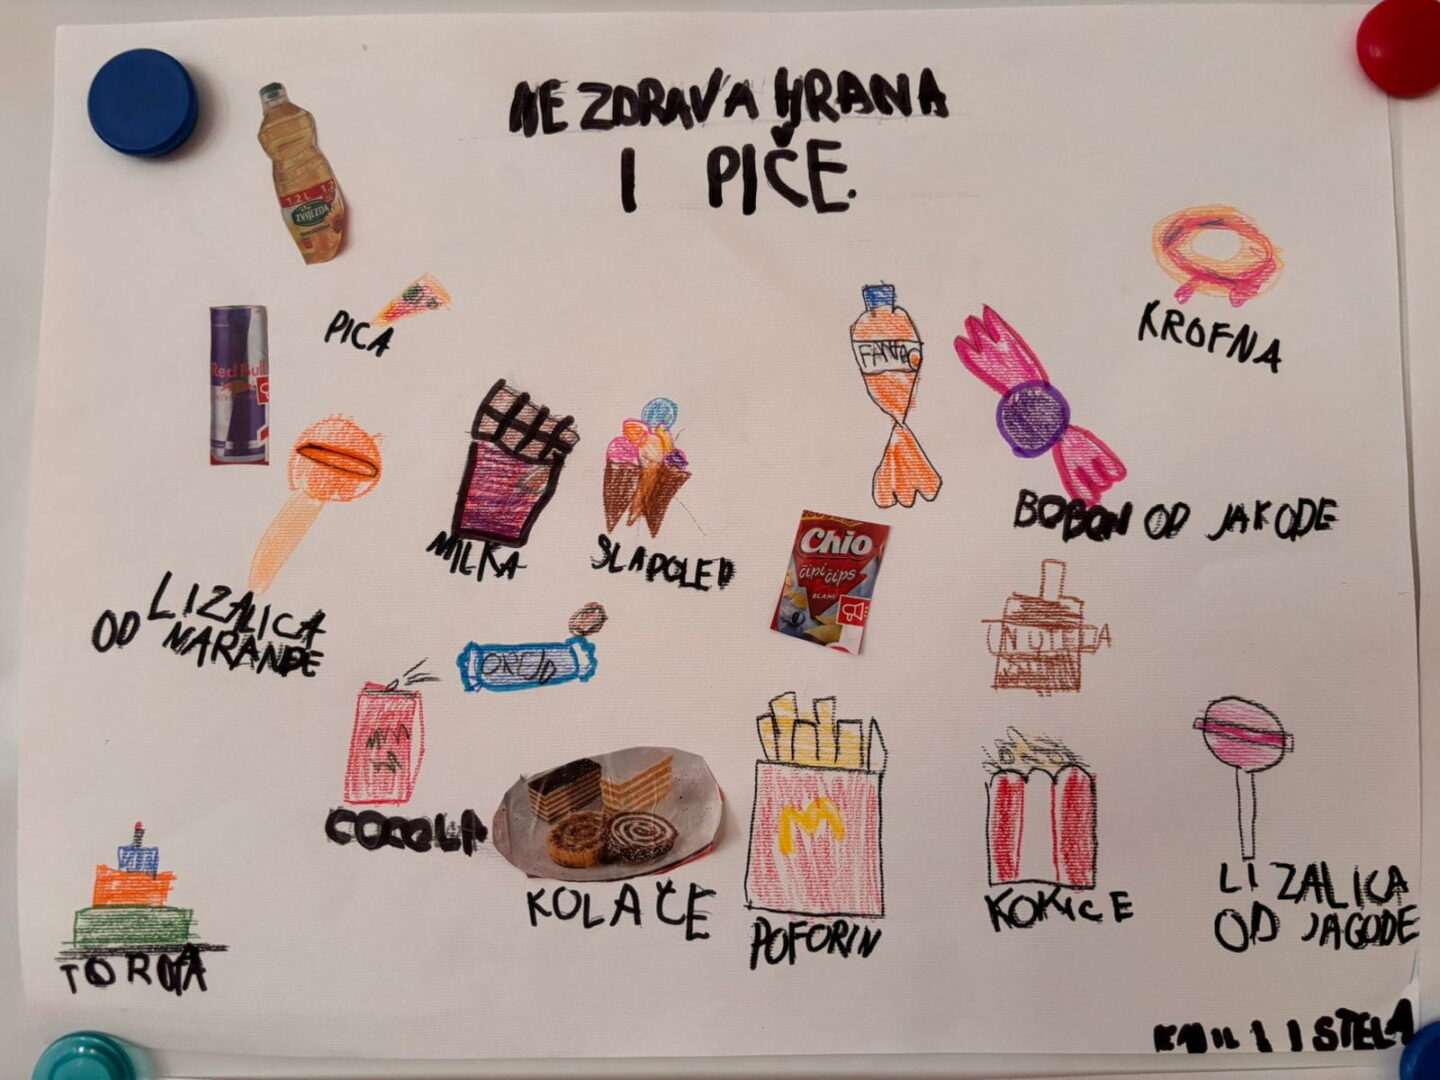 NE ZDRAVA HRANA
I PIČE.
1.2 L 1.2
ZVIJEZDA
PICA
Red Bull
KROFNA
FANTA
MILKA
SLADOLED
BOBON OD JAKODE
Chio
čipi čips
SLANI
LIZALICA
OD NARANĐE
NUTELA
COCOLA
KOLAČE
POFORIN
KOKICE
LIZALICA
OD JAGODE
TORTA
EMIL I STELA